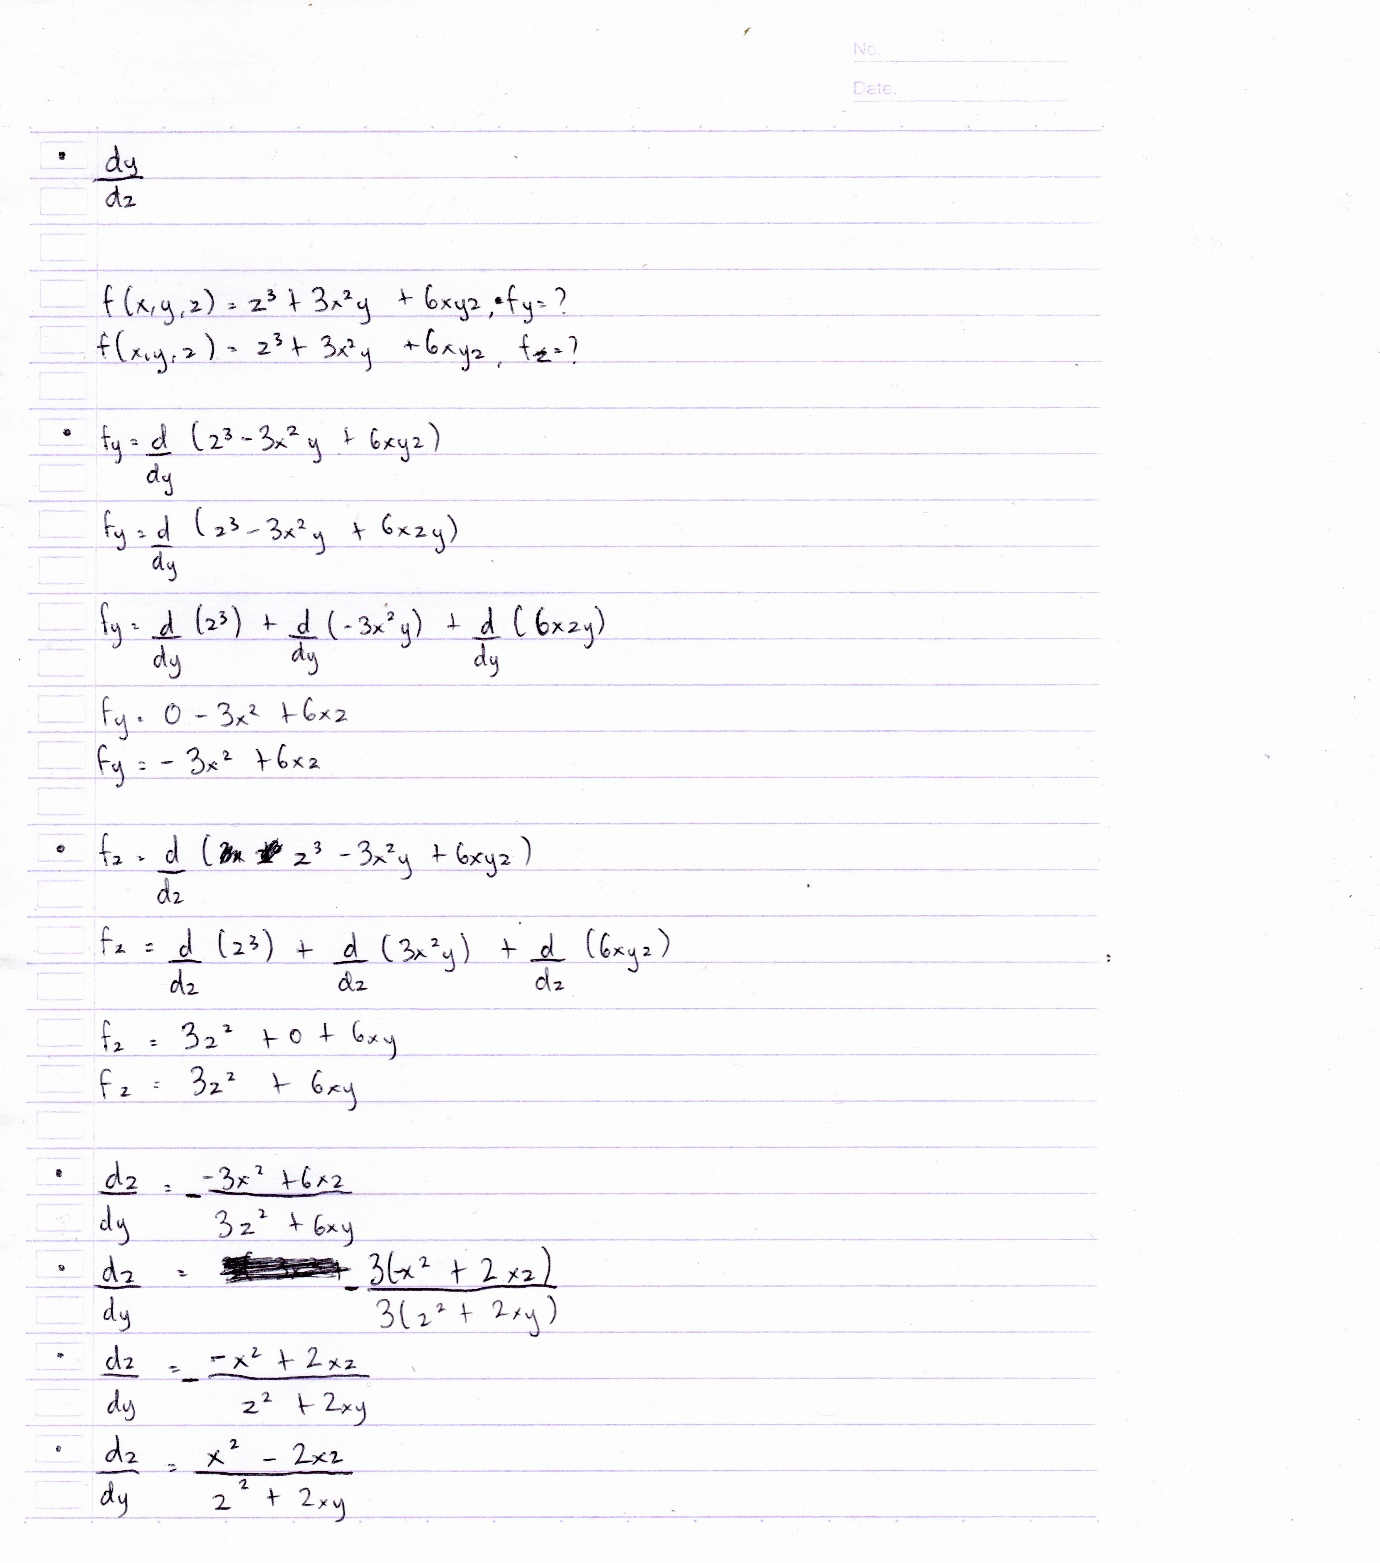 No.
Date.
• dy/dz
f(x,y,z) = z³ + 3x²y + 6xyz, • fy = ?
f(x,y,z) = z³ + 3x²y + 6xyz, fz = ?
• fy = d/dy (z³ - 3x²y + 6xyz)
fy = d/dy (z³ - 3x²y + 6xzy)
fy = d/dy (z³) + d/dy (-3x²y) + d/dy (6xzy)
fy = 0 - 3x² + 6xz
fy = - 3x² + 6xz
• fz = d/dz (z³ - 3x²y + 6xyz)
fz = d/dz (z³) + d/dz (3x²y) + d/dz (6xyz)
fz = 3z² + 0 + 6xy
fz = 3z² + 6xy
• dz/dy = - (-3x² + 6xz)/(3z² + 6xy)
• dz/dy = - 3(-x² + 2xz)/3(z² + 2xy)
• dz/dy = - (-x² + 2xz)/(z² + 2xy)
• dz/dy = (x² - 2xz)/(z² + 2xy)